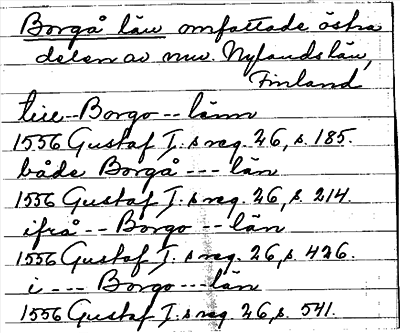 Borgå län omfattade östra
delen av nuv. Nylands län,
Finland
tiie--Borgo--länn
1556 Gustaf I.s reg. 26, s. 185.
både Borgå --- län
1556 Gustaf I.s reg. 26, s. 214.
ifrå -- Borgo -- län
1556 Gustaf I.s reg. 26, s. 426.
i --- Borgo --- län
1556 Gustaf I.s reg. 26, s. 541.